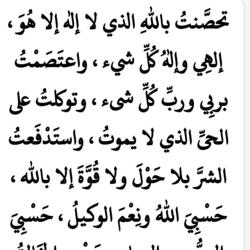 تحصَّنتُ باللهِ الذي لا إلهَ إلا هُوَ ،
إلهِي وإلهُ كُلِّ شيء ، واعتَصَمْتُ
بربِي وربِّ كُلِّ شىء ، وتوكلتُ على
الحىِّ الذي لا يموتُ ، واستَدْفَعتُ
الشرَّ بلا حَوْلَ ولا قُوَّةَ إلا بالله ،
حَسْبِيَ اللهُ ونِعْمَ الوكيلُ ، حَسْبِيَ